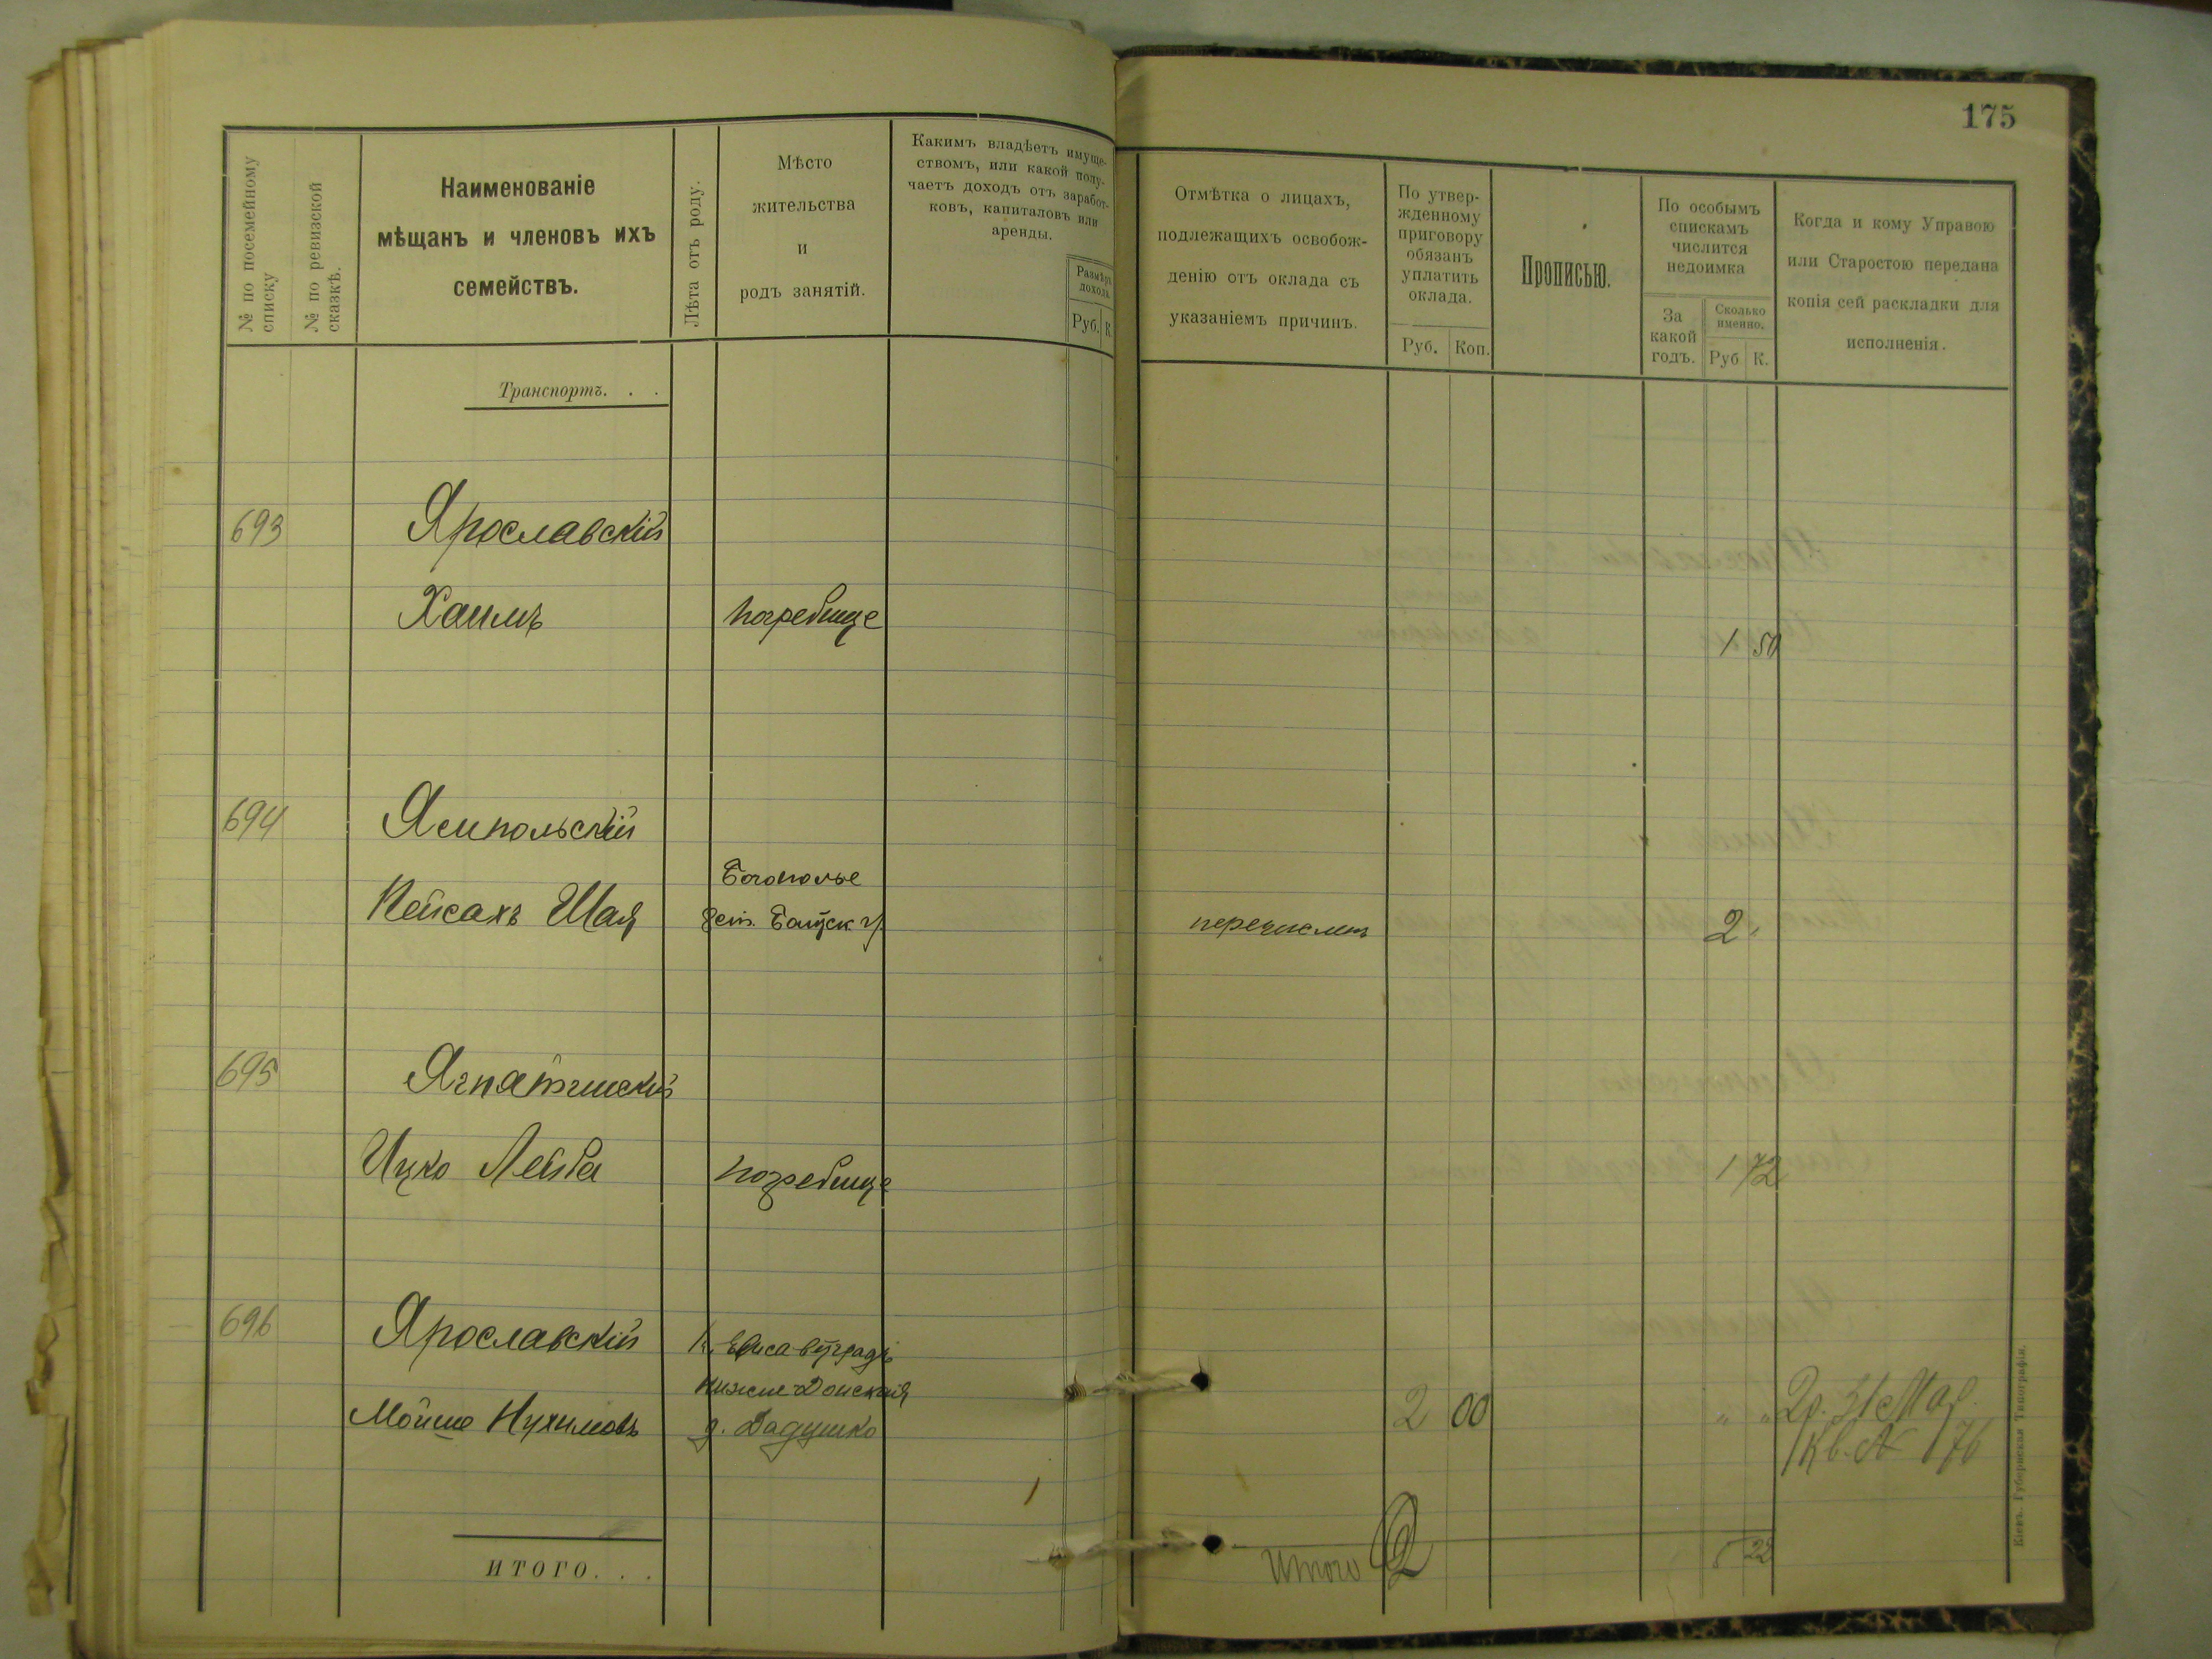 175
№ по посемейному списку
№ по ревизской сказкѣ.
Наименованіе
мѣщанъ и членовъ ихъ
семействъ.
Лѣта отъ роду.
Мѣсто
жительства
и
родъ занятій.
Какимъ владѣетъ имуще-
ствомъ, или какой полу-
чаетъ доходъ отъ заработ-
ковъ, капиталовъ или
аренды.
Размѣръ
дохода
Руб. К.
Отмѣтка о лицахъ,
подлежащихъ освобож-
денію отъ оклада съ
указаніемъ причинъ.
По утвер-
жденному
приговору
обязанъ
уплатить
оклада.
Руб. Коп.
Прописью.
По особымъ
спискамъ
числится
недоимка
За
какой
годъ.
Сколько
именно.
Руб К.
Когда и кому Управою
или Старостою передана
копія сей раскладки для
исполненія.
Транспортъ. . .
693 Ярославскій
Хаимъ Погребище 1 50
694 Ямпольскій
Богополье
Пейсахъ Шая перечислен 2 "
695 Ягнятинскій
Ицко Лейба Погребище 1 72
696 Ярославскій г. Елисаветградъ
Нижне Донская
Мойше Нухимовъ д. Дадушко 2 00 " " 2р. 31 Мар.
Кв. № 176
ИТОГО. . .
Итого 2 5 22
Кіевъ. Губернская Типографія.